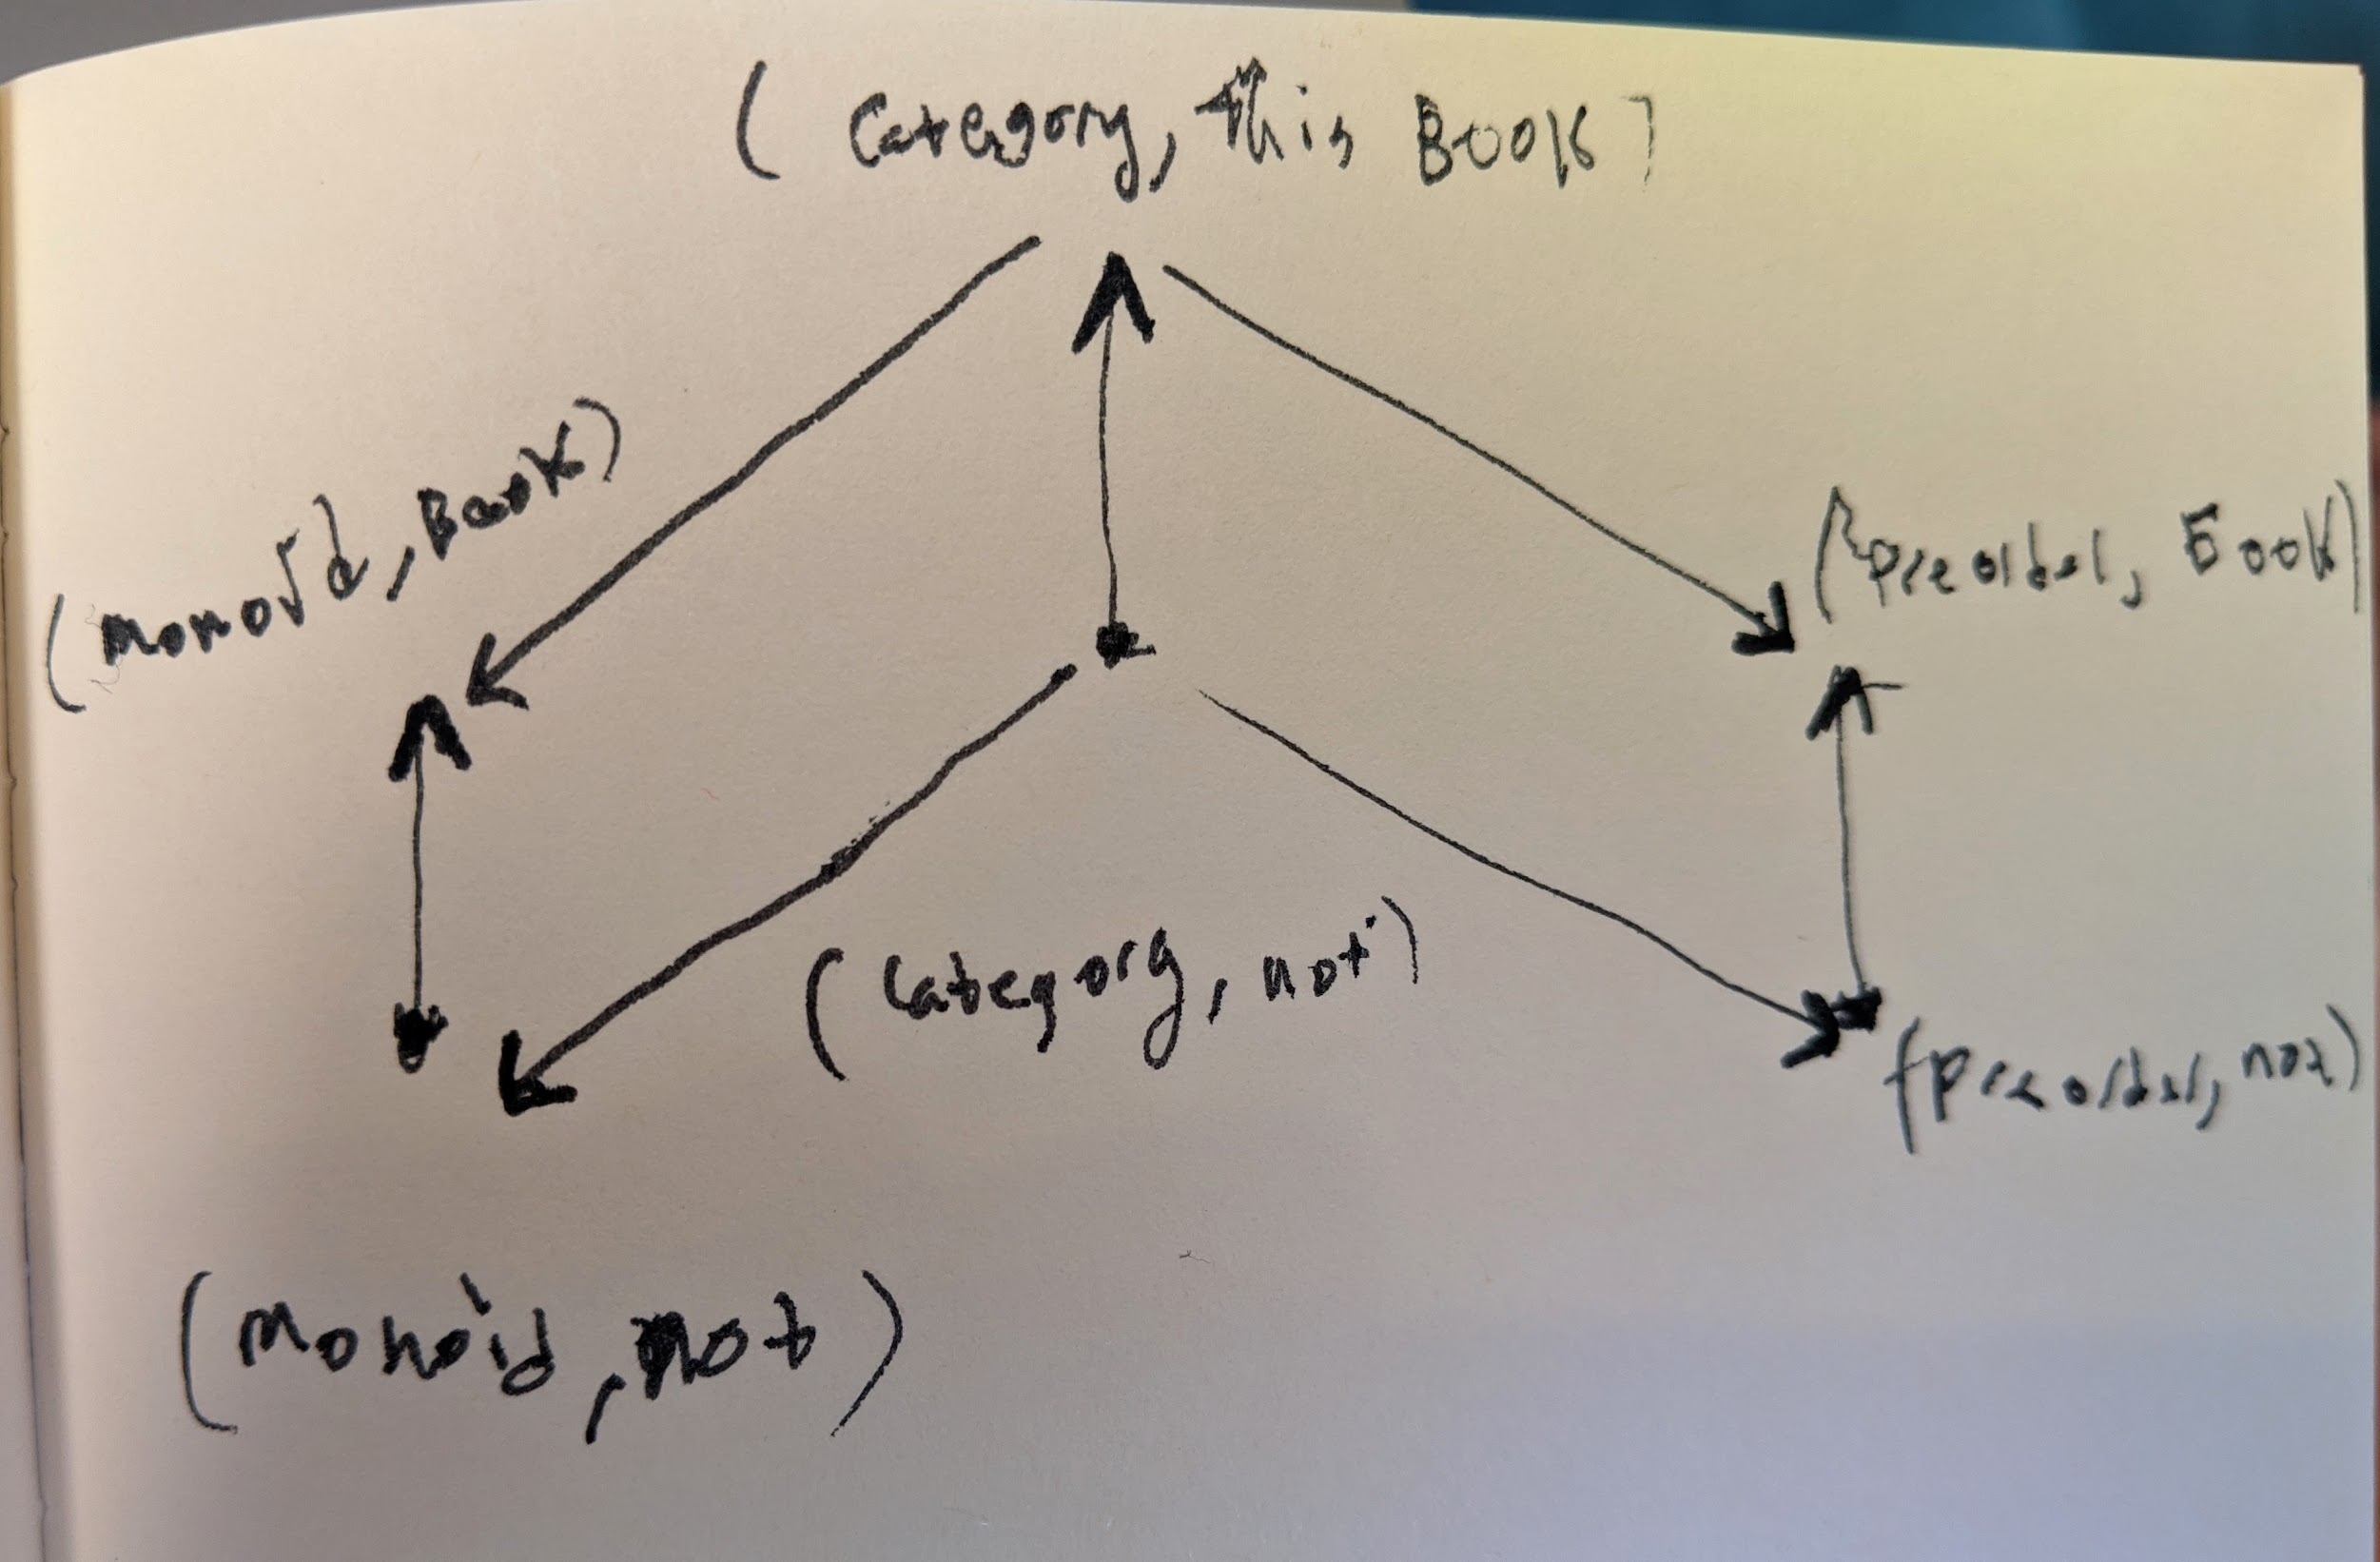 (Category, this Book)
(monoid, Book)
(preorder, Book)
(Category, not)
(preorder, not)
(Monoid, not)